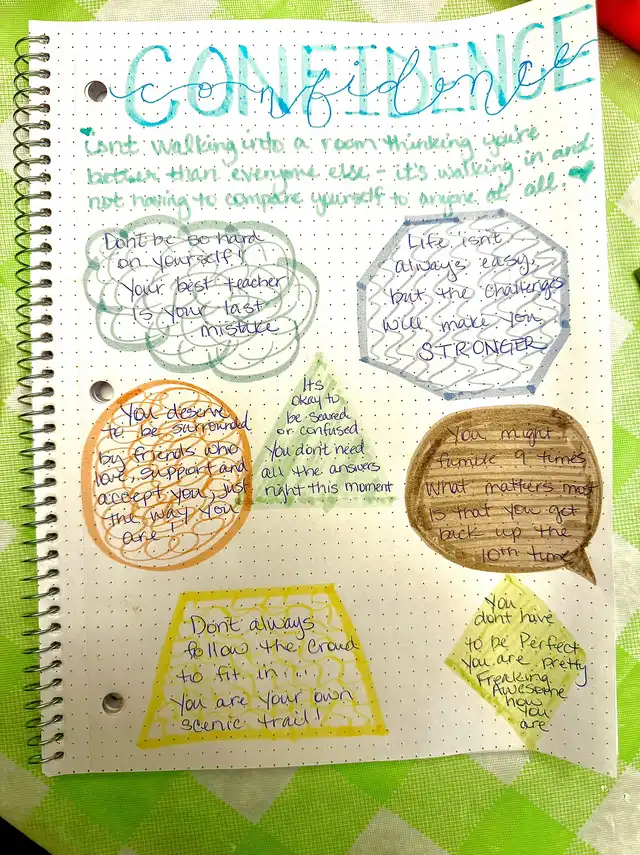 CONFIDENCE
confidence
isn't walking into a room thinking you're
better than everyone else - it's walking in and
not having to compare yourself to anyone at all.
Don't be so hard
on yourself!
Your best teacher
is your last
mistake
Life isn't
always easy,
but the challenges
will make you
STRONGER
You deserve
to be surrounded
by friends who
love, support and
accept you, just
the way you
are!
Its
okay to
be scared
or confused
You don't need
all the answers
right this moment
You might
fumble 9 times
What matters most
is that you get
back up the
10th time
Don't always
follow the crowd
to fit in....
You are your own
scenic trail!
You
dont have
to be Perfect
You are pretty
Freaking
Awesome
how
you
are